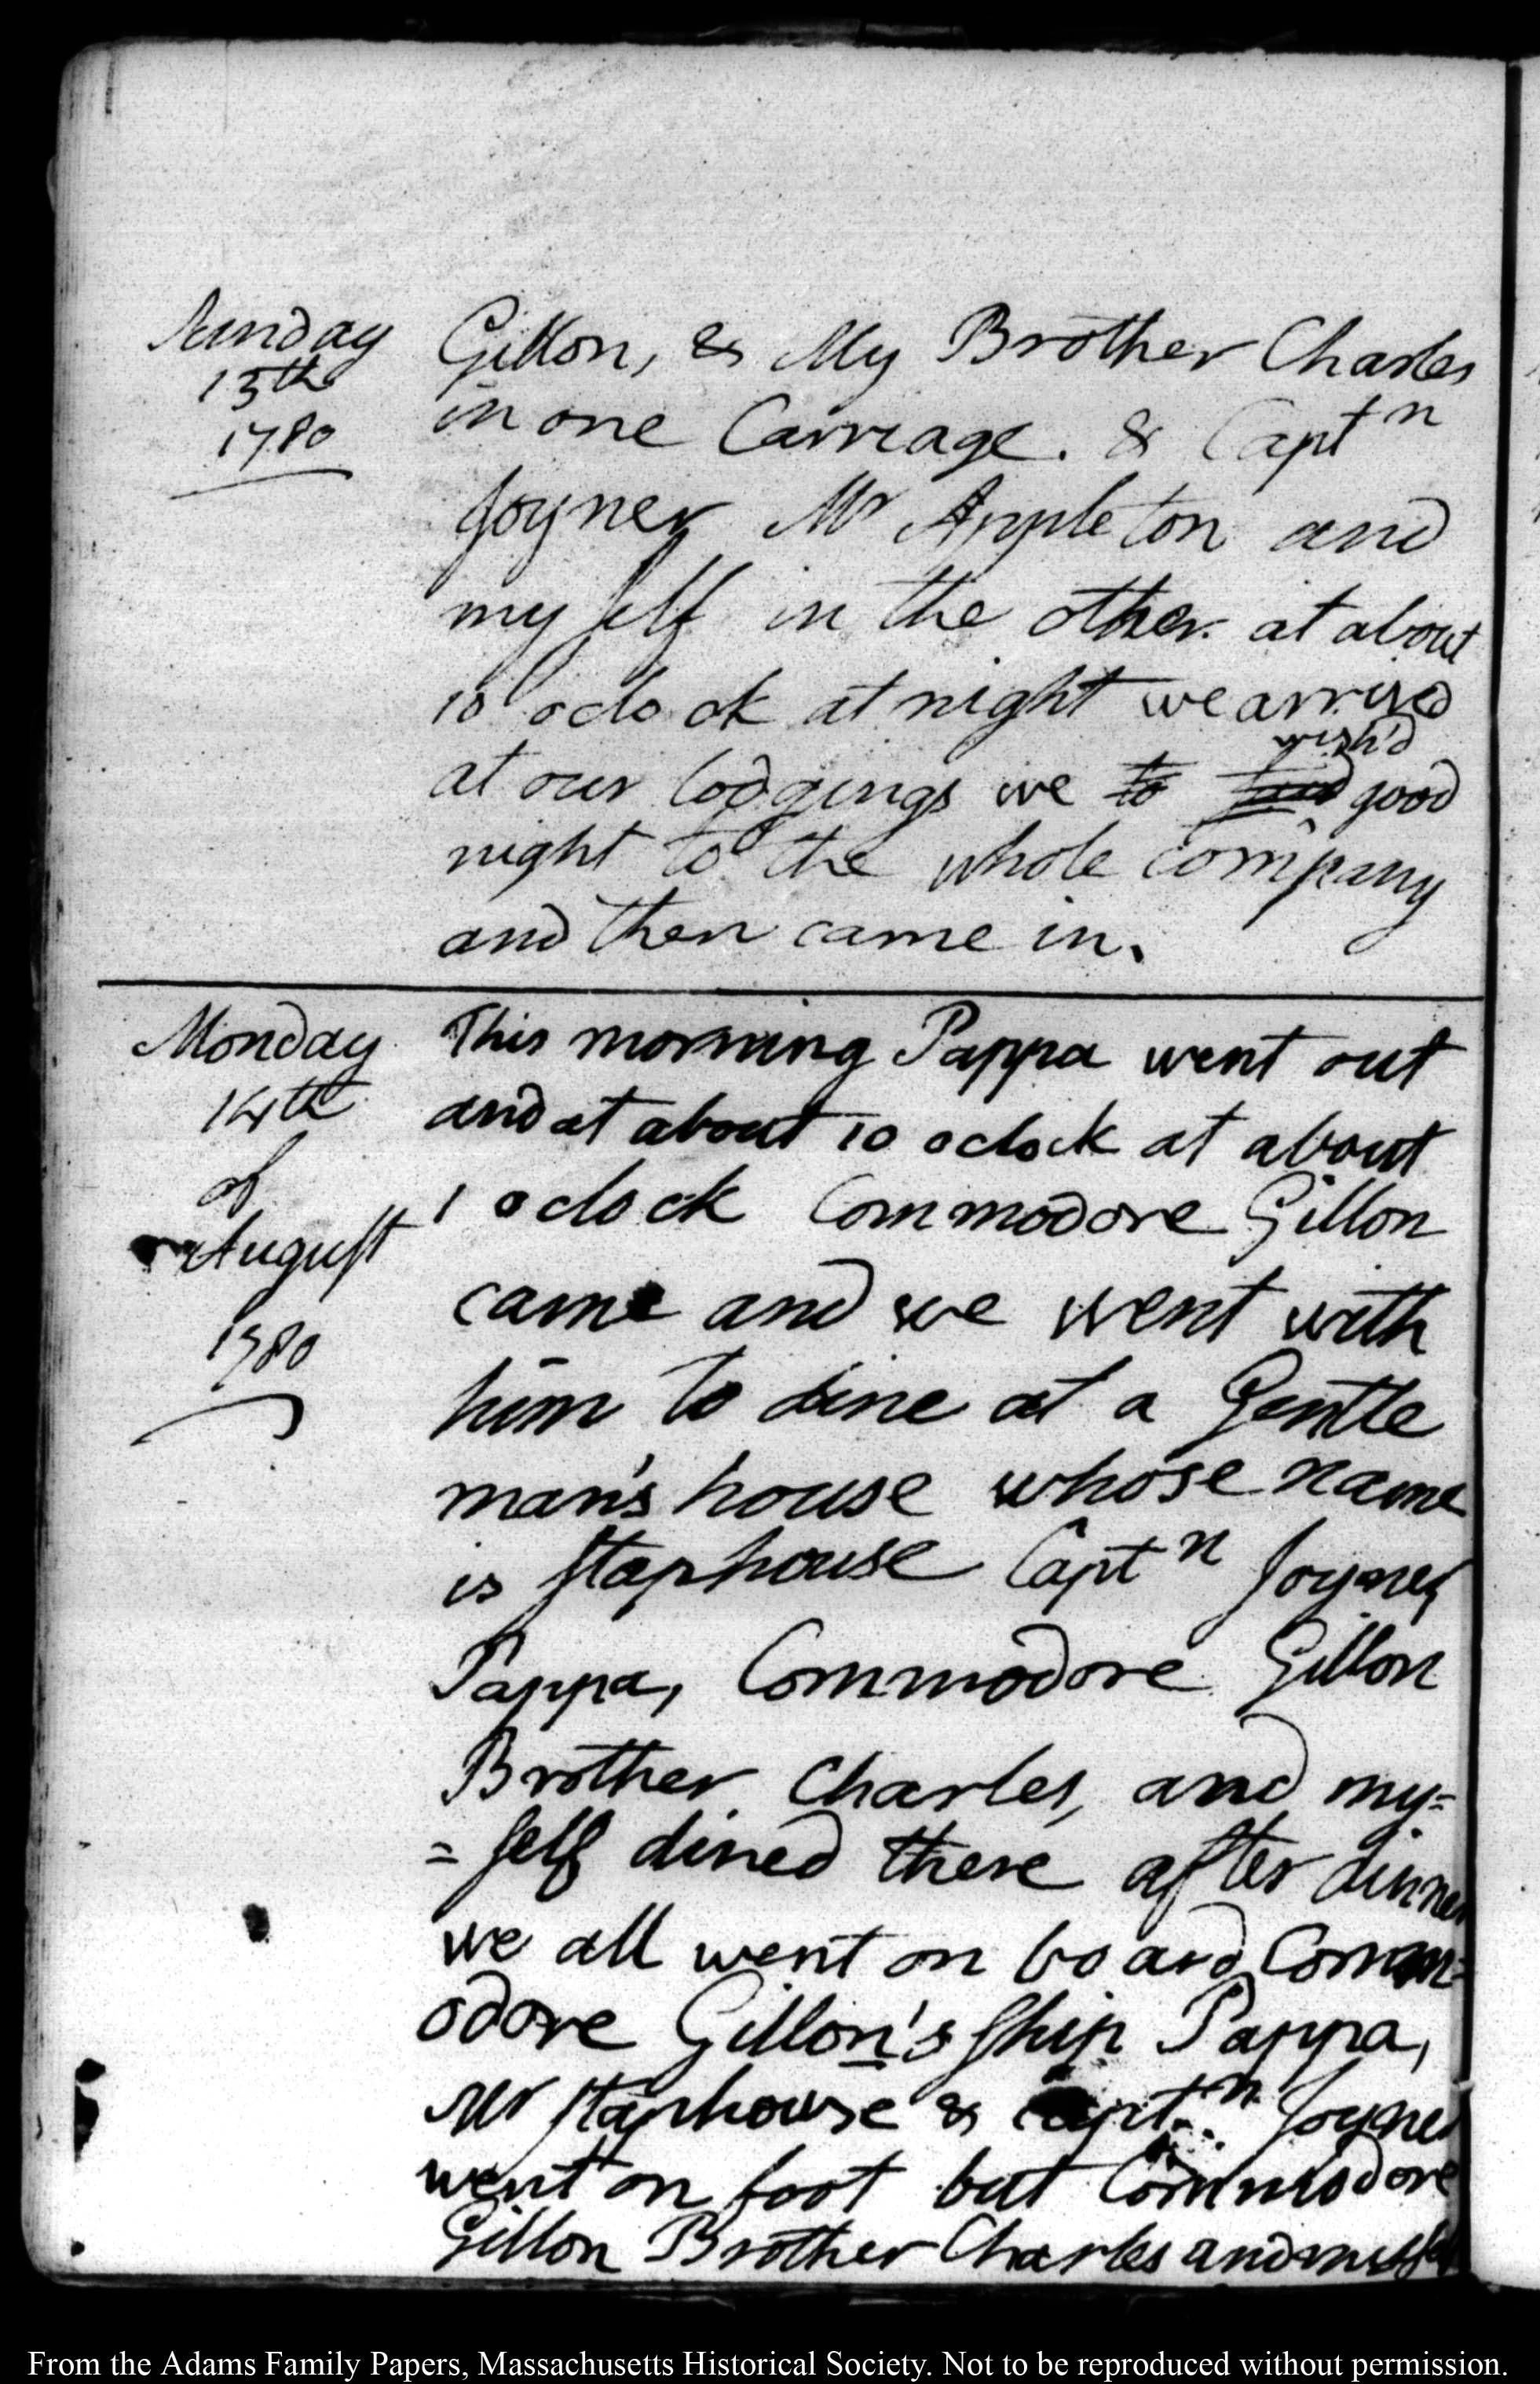 Sunday
13th
1780
Gillon, & My Brother Charles
in one Carriage. & Captn
Joyner Mr Appleton and
my self in the other. at about
10 oclock at night we arrived
wish'd
at our lodgings we to good
night to the whole company
and then came in.
Monday
14th
of
August
1780
This morning Pappa went out
and at about 10 oclock at about
1 oclock Commodore Gillon
came and we went with
him to dine at a Gentle
man's house whose name
is staphouse Captn Joyner
Pappa, Commodore Gillon
Brother Charles, and my=
=self dined there after dinner
we all went on board Comm=
odore Gillon's ship Pappa,
Mr staphouse & captn Joyner
went on foot but Commodore
Gillon Brother Charles and myself
From the Adams Family Papers, Massachusetts Historical Society. Not to be reproduced without permission.